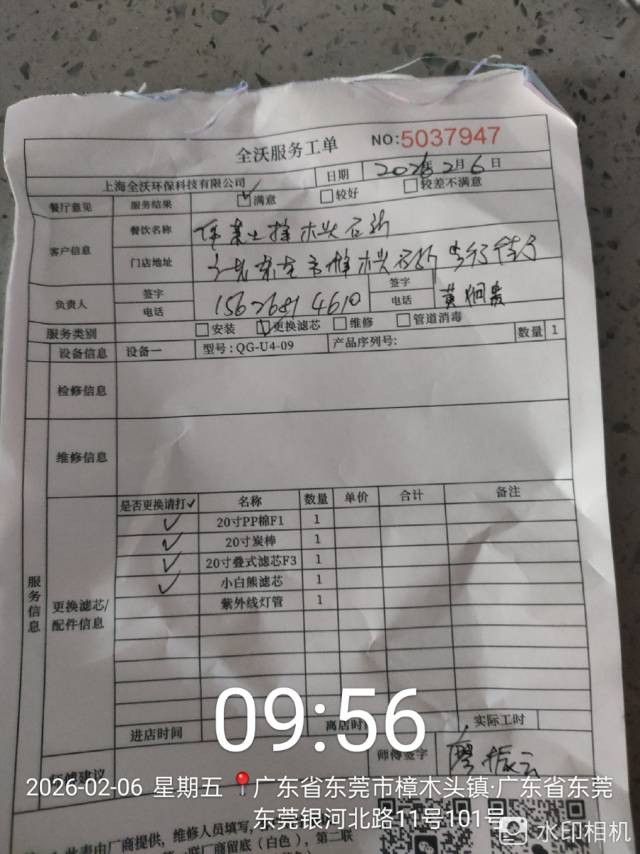 全沃服务工单 NO:5037947
上海全沃环保科技有限公司 日期 2026年2月6日
餐厅意见 服务结果 满意 较好 较差不满意
客户信息 餐饮名称
门店地址
负责人 签字 签字
电话 15626814610 电话
服务类别 安装 更换滤芯 维修 管道消毒
设备信息 设备一 型号:QG-U4-09 产品序列号: 数量 1
检修信息
维修信息
服务信息
更换滤芯/配件信息
是否更换请打✓ 名称 数量 单价 合计 备注
✓ 20寸PP棉F1 1
✓ 20寸炭棒 1
✓ 20寸叠式滤芯F3 1
✓ 小白熊滤芯 1
紫外线灯管 1
进店时间 离店时 实际工时
建议 师傅签字 廖振云
09:56
2026-02-06 星期五 广东省东莞市樟木头镇·广东省东莞
东莞银河北路11号101号
此表由厂商提供，维修人员填写，
厂商留底（白色），第二联
水印相机